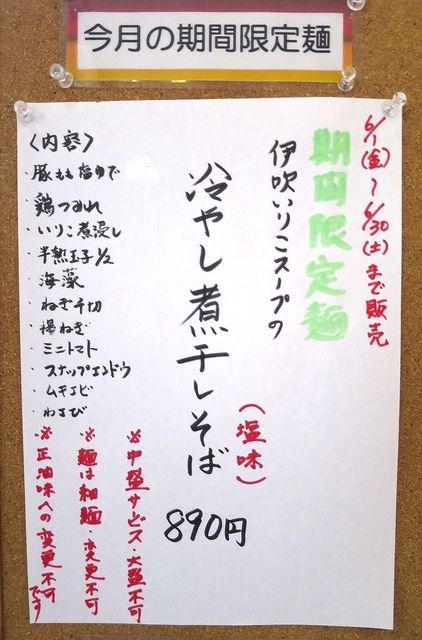 今月の期間限定麺
6/1(金)〜6/30(土)まで販売
期間限定麺
伊吹いりこスープの
冷やし煮干しそば
(塩味)
890円
〈内容〉
・豚もも塩ゆで
・鶏つみれ
・いりこ煮浸し
・半熟玉子1/2
・海藻
・ねぎ千切
・揚ねぎ
・ミニトマト
・スナップエンドウ
・ムキエビ
・わさび
※中盛サービス・大盛不可
※麺は細麺・変更不可
※正油味への変更不可です